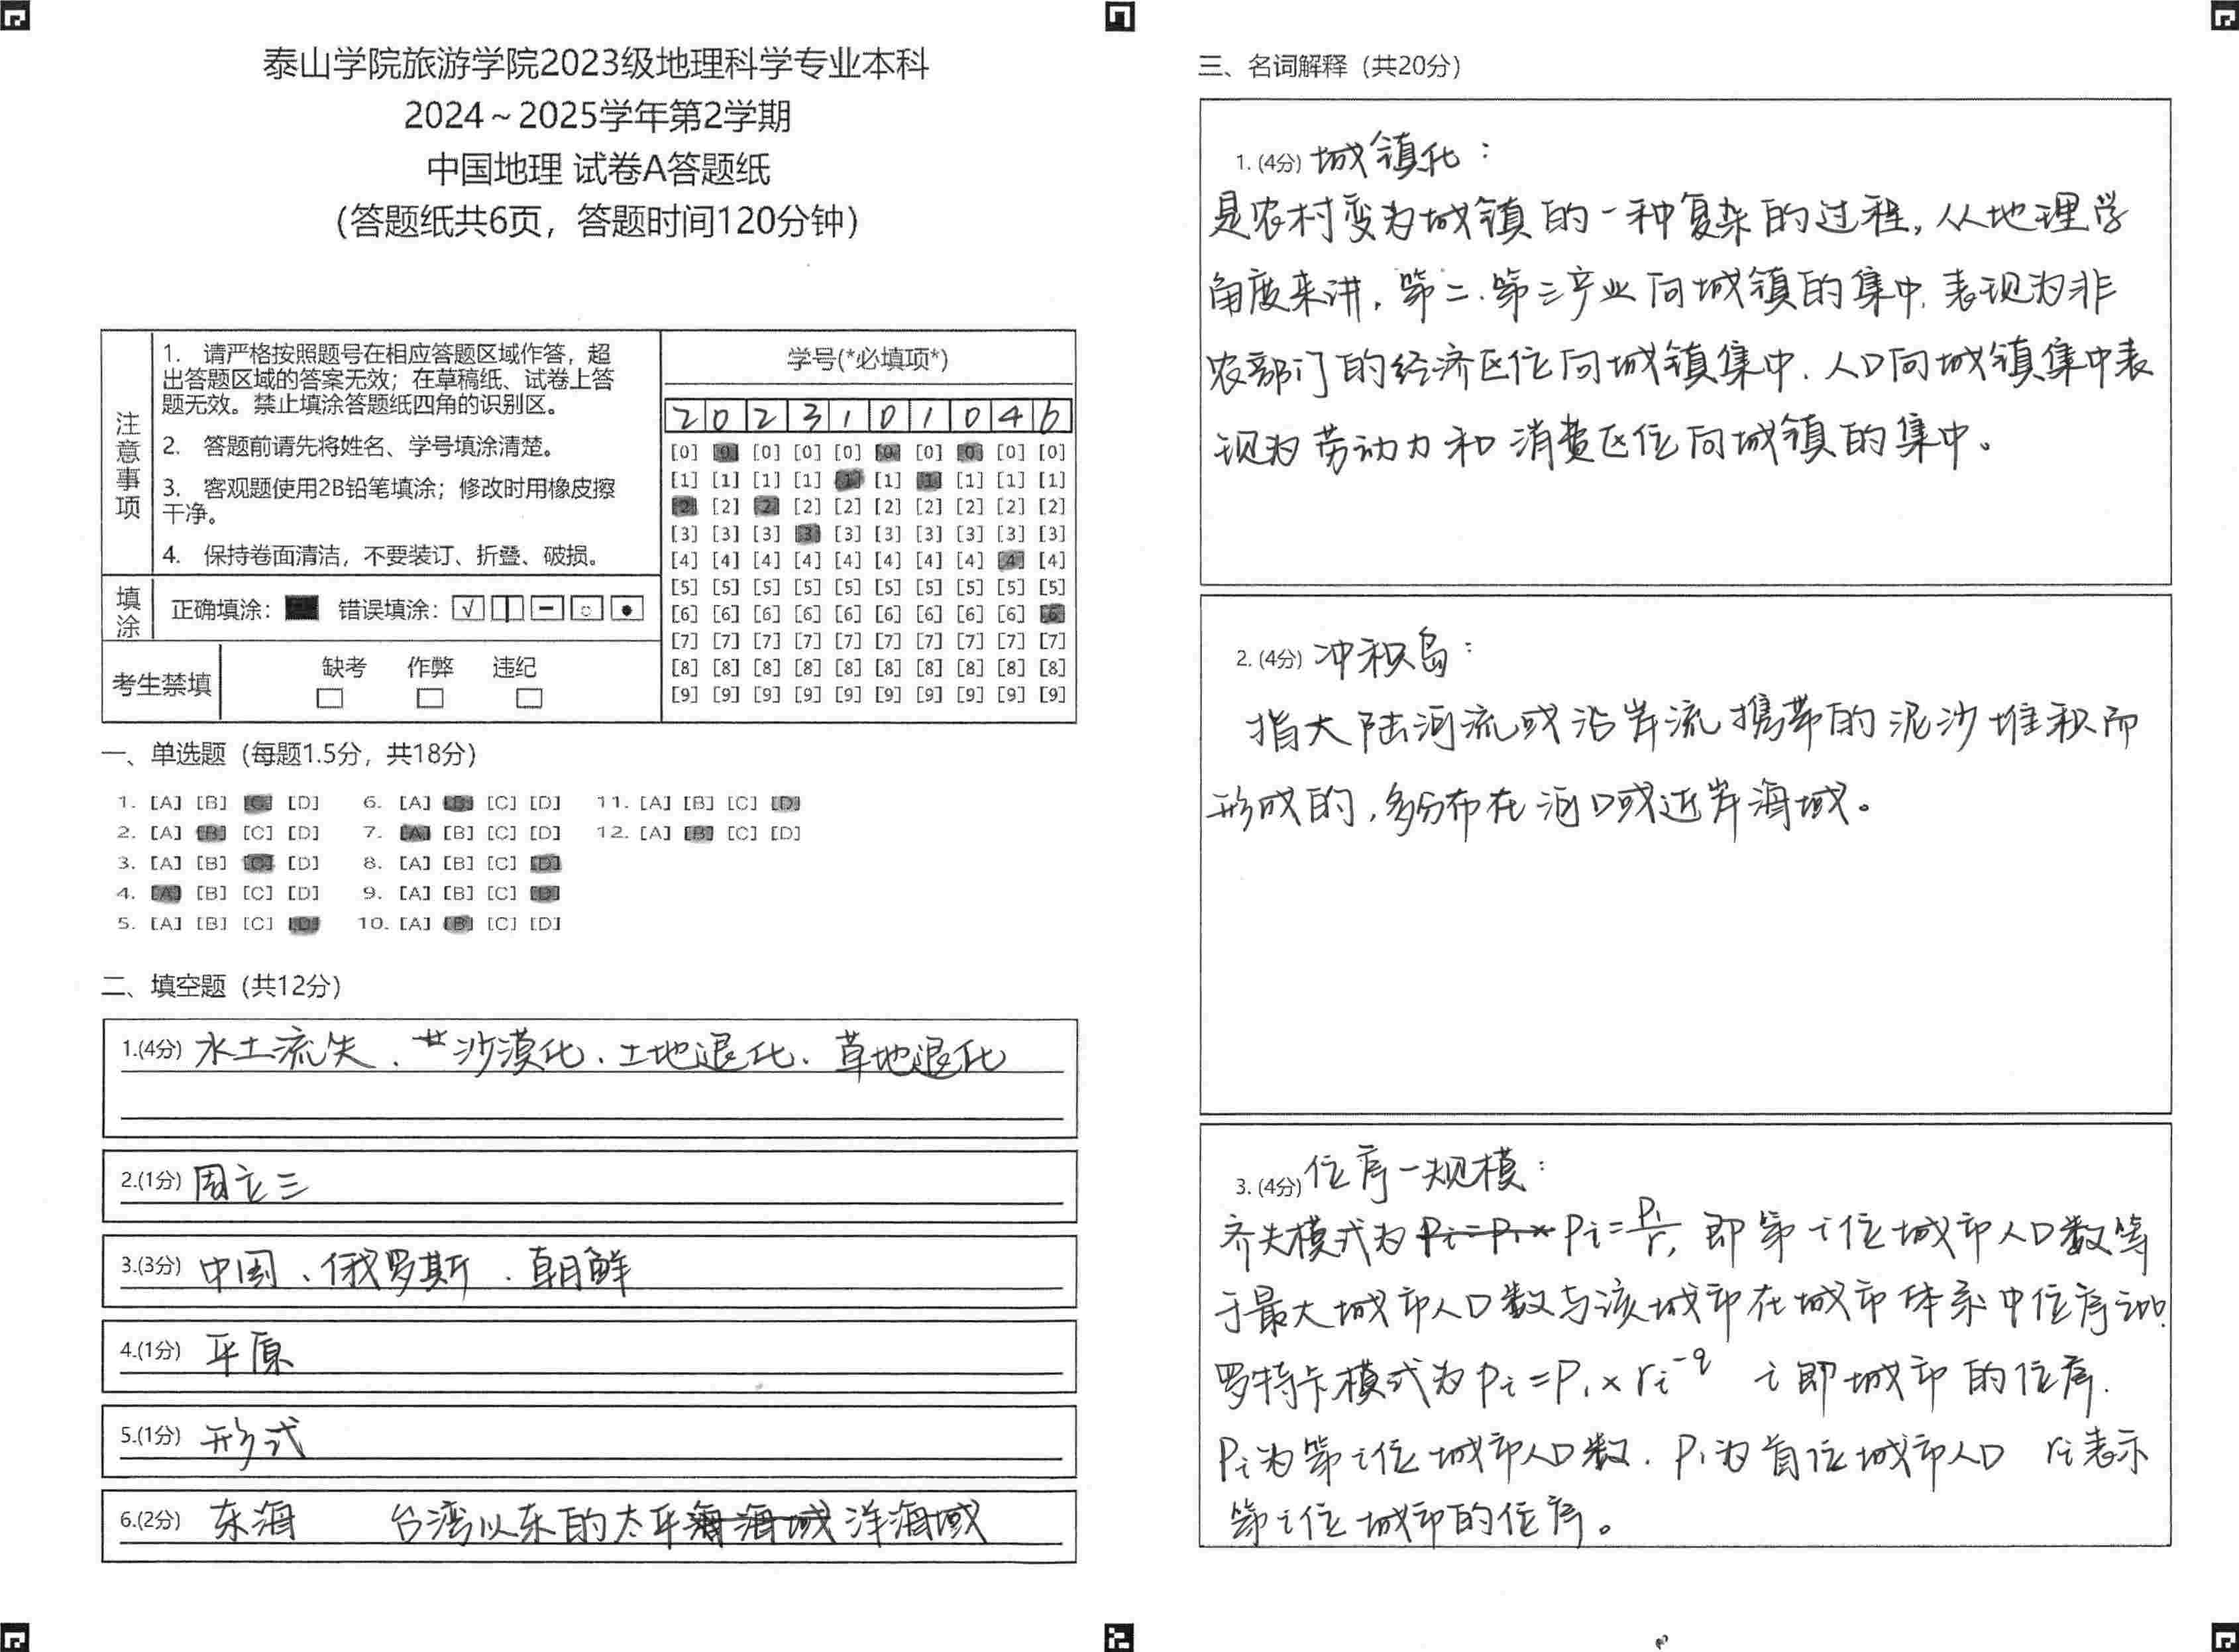 泰山学院旅游学院2023级地理科学专业本科
2024～2025学年第2学期
中国地理 试卷A答题纸
（答题纸共6页，答题时间120分钟）
注意事项
1. 请严格按照题号在相应答题区域作答，超
出答题区域的答案无效；在草稿纸、试卷上答
题无效。禁止填涂答题纸四角的识别区。
2. 答题前请先将姓名、学号填涂清楚。
3. 客观题使用2B铅笔填涂；修改时用橡皮擦
干净。
4. 保持卷面清洁，不要装订、折叠、破损。
填涂
正确填涂： 错误填涂：
考生禁填
缺考 作弊 违纪
学号(*必填项*)
2 0 2 3 1 0 1 0 4 6
[0] [0] [0] [0] [0] [0] [0] [0] [0] [0]
[1] [1] [1] [1] [1] [1] [1] [1] [1] [1]
[2] [2] [2] [2] [2] [2] [2] [2] [2] [2]
[3] [3] [3] [3] [3] [3] [3] [3] [3] [3]
[4] [4] [4] [4] [4] [4] [4] [4] [4] [4]
[5] [5] [5] [5] [5] [5] [5] [5] [5] [5]
[6] [6] [6] [6] [6] [6] [6] [6] [6] [6]
[7] [7] [7] [7] [7] [7] [7] [7] [7] [7]
[8] [8] [8] [8] [8] [8] [8] [8] [8] [8]
[9] [9] [9] [9] [9] [9] [9] [9] [9] [9]
一、单选题（每题1.5分，共18分）
1. [A] [B] [C] [D] 6. [A] [B] [C] [D] 11. [A] [B] [C] [D]
2. [A] [B] [C] [D] 7. [A] [B] [C] [D] 12. [A] [B] [C] [D]
3. [A] [B] [C] [D] 8. [A] [B] [C] [D]
4. [A] [B] [C] [D] 9. [A] [B] [C] [D]
5. [A] [B] [C] [D] 10. [A] [B] [C] [D]
二、填空题（共12分）
1.(4分) 水土流失、沙漠化、土地退化、草地退化
2.(1分) 周立三
3.(3分) 中国、俄罗斯、朝鲜
4.(1分) 平原
5.(1分) 形式
6.(2分) 东海 台湾以东的太平洋海域
三、名词解释（共20分）
1. (4分) 城镇化：
是农村变为城镇的一种复杂的过程，从地理学
角度来讲，第二、第三产业向城镇的集中，表现为非
农部门的经济区位向城镇集中，人口向城镇集中表
现为劳动力和消费区位向城镇的集中。
2. (4分) 冲积岛：
指大陆河流或沿岸流携带的泥沙堆积而
形成的，多分布在河口或近岸海域。
3. (4分) 位序一规模：
齐夫模式为 Pi=P1/r，即第i位城市人口数等
于最大城市人口数与该城市在城市体系中位序
罗特卡模式为Pi=P1×ri^-q i即城市的位序.
Pi为第i位城市人口数. P1为首位城市人口 ri表示
第i位城市的位序。